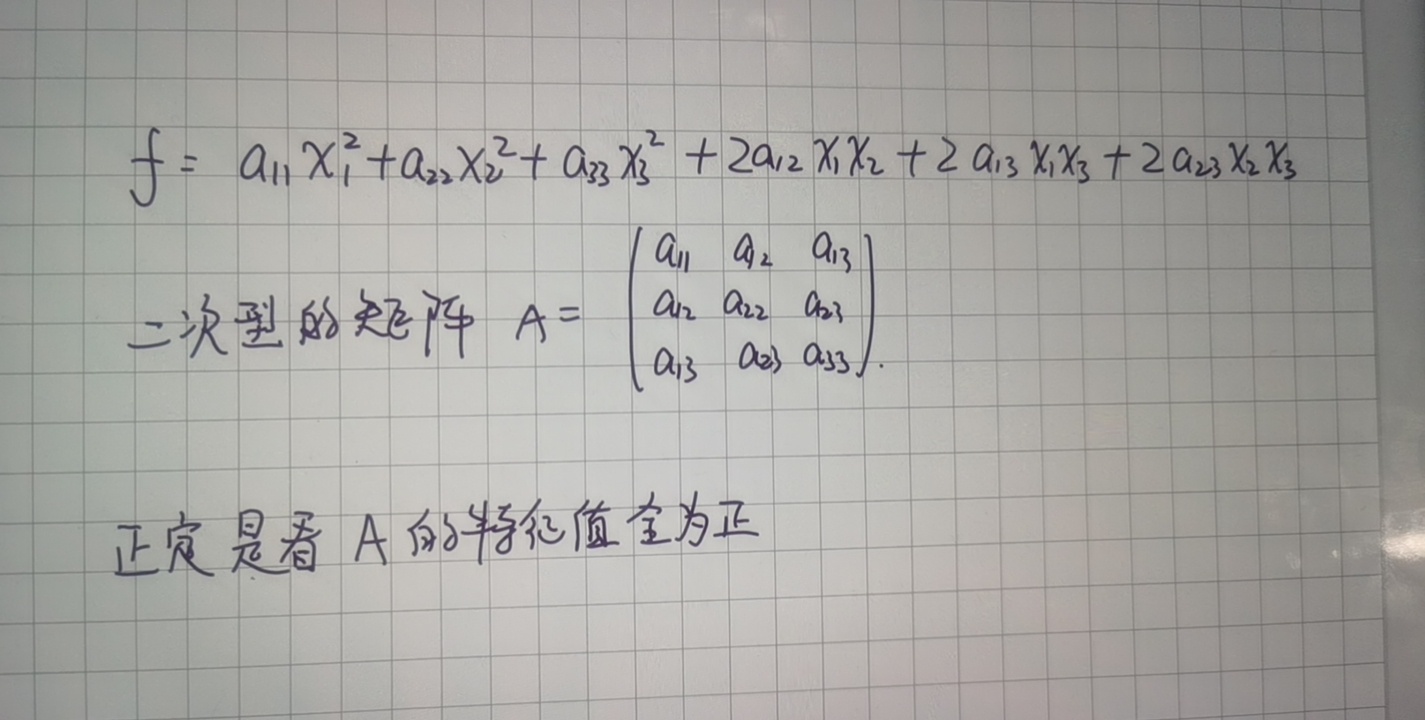 f = a₁₁x₁² + a₂₂x₂² + a₃₃x₃² + 2a₁₂x₁x₂ + 2a₁₃x₁x₃ + 2a₂₃x₂x₃
a₁₁ a₁₂ a₁₃
二次型的矩阵 A = a₁₂ a₂₂ a₂₃
a₁₃ a₂₃ a₃₃.
正定是看 A 的特征值全为正